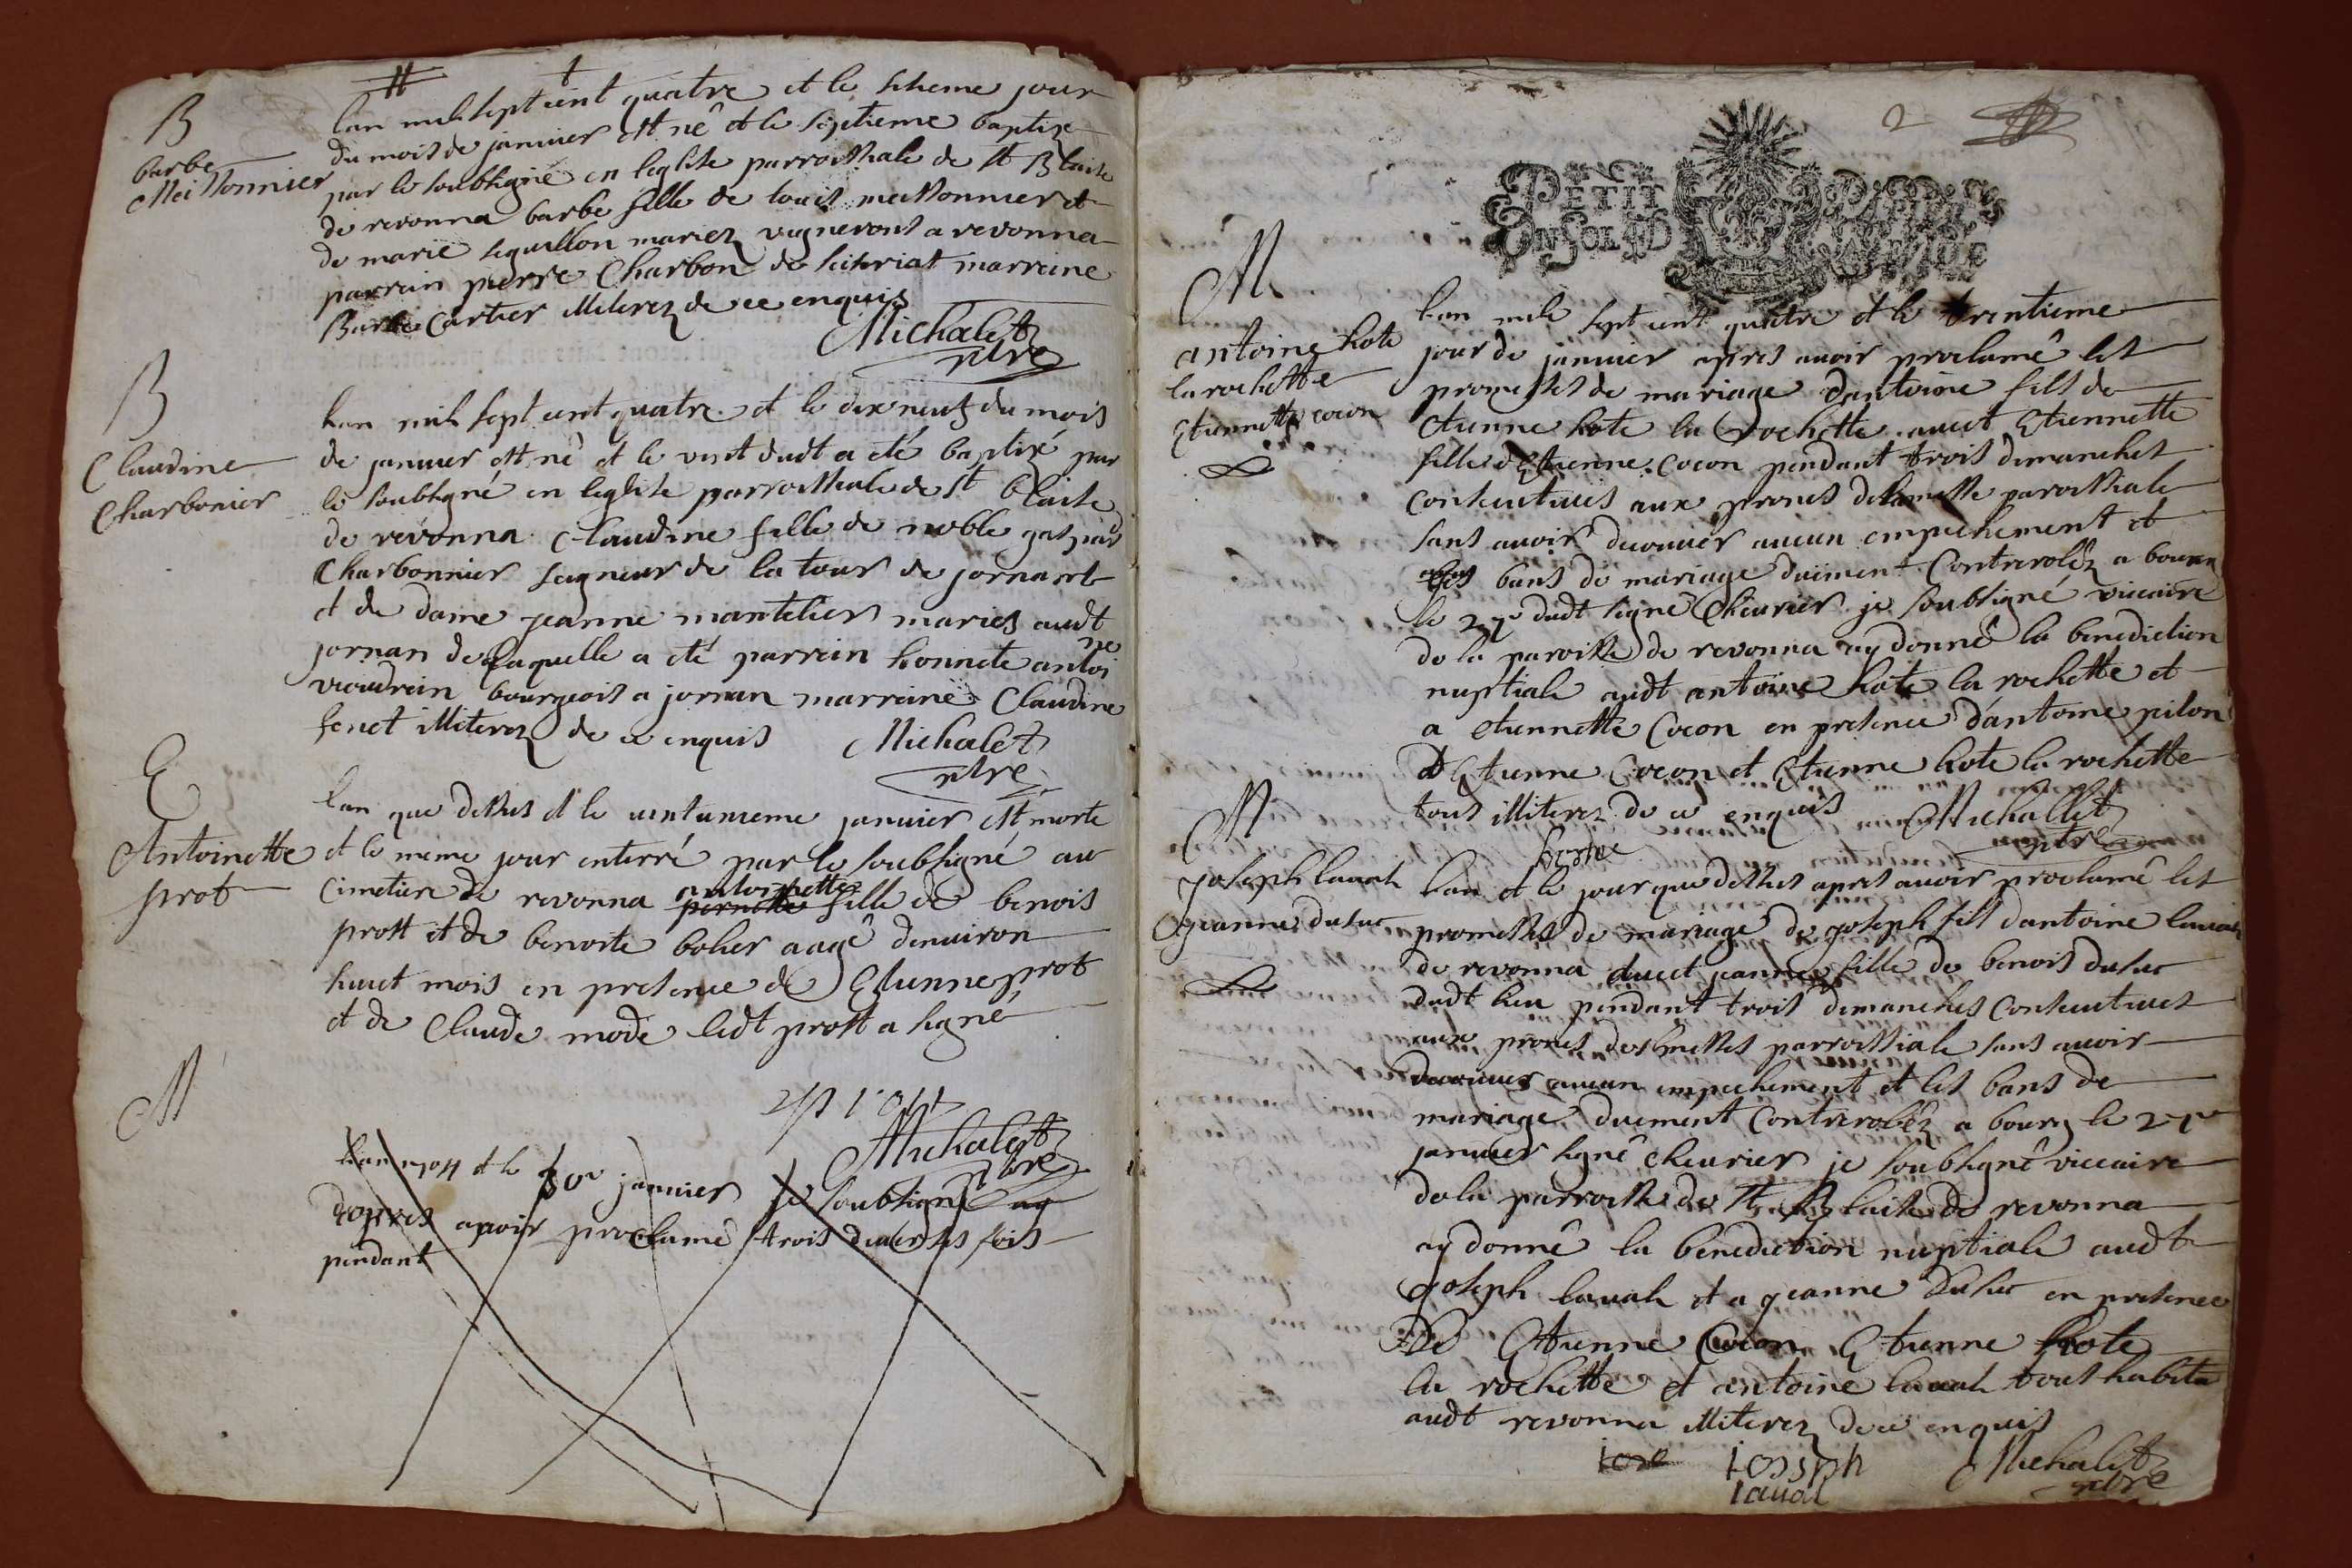 B
barbe
Meissonnier
lan mil sept cent quatre et le sixieme jour
du mois de janvier est né et le septieme baptizé
par le soubsigné en leglise parroissiale de st Blaise
de revonna barbe fille de louis meissonnier et
de marie seguillon mariez vignerons a revonna
parrain pierre Charbon de marreine
Barbe Cartier illiterez de ce enquis
Michalet
ptre
B
Claudine
Charbonier
lan mil sept cent quatre et le dixneuf du mois
de janvier est né et le vint dudt a eté baptizé par
le soubsigné en leglise parroissiale de st blaise
de revonna Claudine fille de noble gaspard
Charbonnier seigneur de la tour de jornant
et de dame jeanne mantelier mariez audt
jornan de laquelle a eté parrein honnete antoi
ne
viondrin bourgeois a jornan marreine Claudine
fenet illiterez de ce enquis
Michalet
ptre
E
Antoinette
prot
lan que dessus et le vintunieme janvier est morte
et le meme jour enterré par le soubsigné au
cimetiere de revonna pernette antoinette fille de benois
prost et de benoite bolier aagé denviron
huict mois en presence de Etienne prot
et de Claude mode ledt prost a signé
Michalet
ptre
M
lan 1704 et le 30e janvier je soubsigné ay
apres avoir proclamé trois diverses fois
pendant
2
PETIT PAPIER
UN SOL
M
antoine hote
la rochette
Etiennette cocon
lan mil sept cent quatre et le trentieme
jour de janvier apres avoir proclamé les
promesses de mariage dantoine fils de
etienne hote la rochette avect Etiennette
fille dEtienne Cocon pendant trois dimanches
consecutives aux prones de la messe parroissiale
sans avoir decouvier aucun empechement et
les bans de mariage duëment Controrolëz a bourg
le 27e dudt signé Cheurier je soubsigné viccaire
de la paroisse de revonna ay donné la benediction
nuptiale audt antoine hote la rochette et
a etiennette Cocon en presence dantoine pilon
et Etienne Cocon et Etienne hote la rochette
tous illiterez de ce enquis
Michallet
ptre
M
Joseph lauah
Jeanne dusuc
lan et le jour que dessus apres avoir proclamé les
promesses de mariage de joseph fils dantoine lauah
de revonna avect jeanne fille de benois dusuc
dudt lieu pendant trois dimanches Consecutives
aux prones des messes parroissiale sans avoir
decouvier aucun empechement et les bans de
mariage duement Controrolëz a bourg le 27e
janvier signé cheurier je soubsigné viccaire
de la parroisse de st Blaise de revonna
ay donné la benediction nuptiale audt
Joseph lauah et a jeanne dusuc en presence
De Etienne Cocon Etienne hote
la rochette et antoine lauah tous habita
audt revonna illiterez de ce enquis
iose ioseph
laual
Michalet
ptre